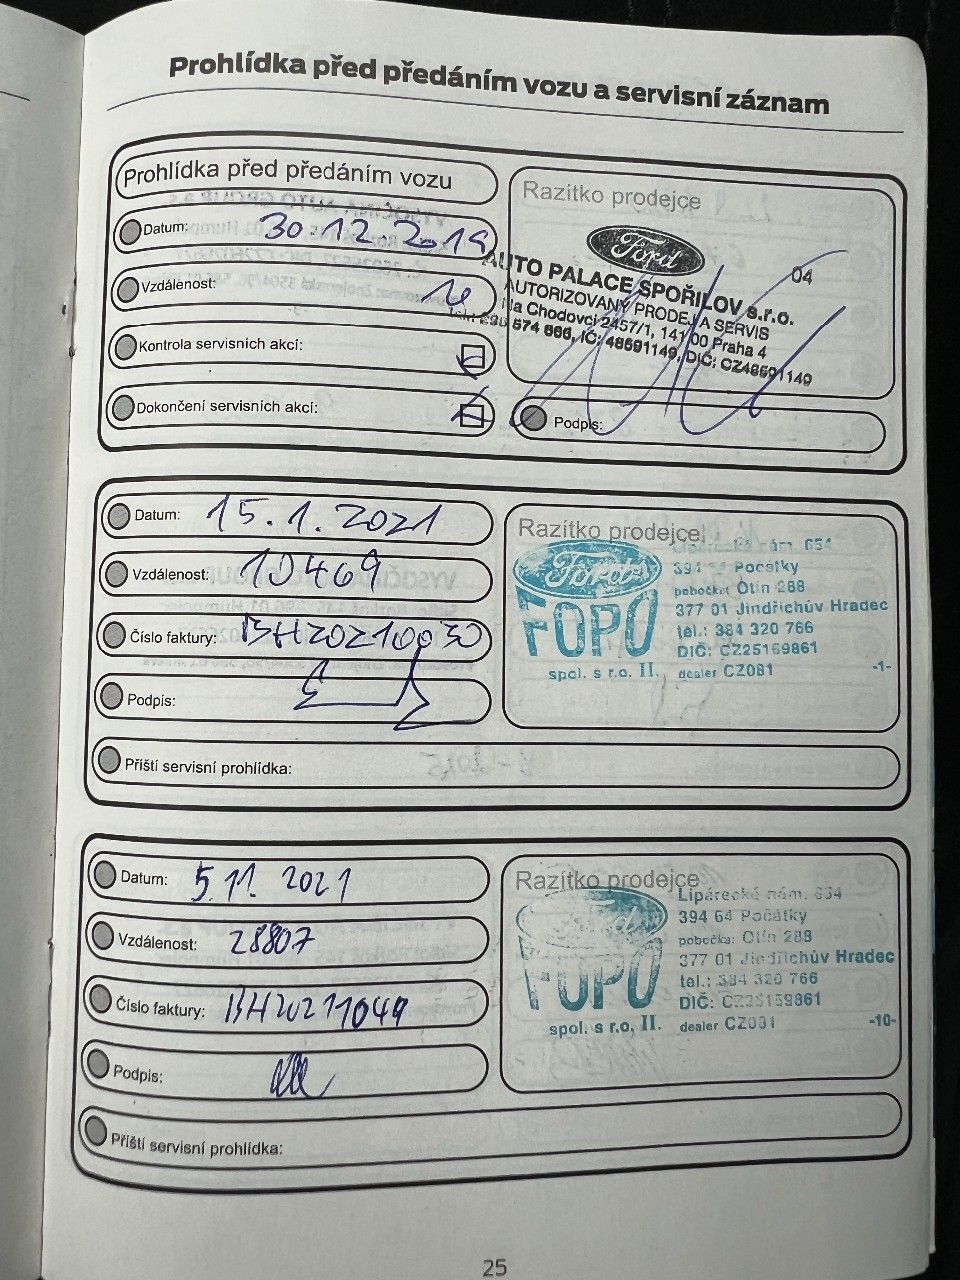 Prohlídka před předáním vozu a servisní záznam
Prohlídka před předáním vozu
Datum: 30.12.2019
Vzdálenost:
Kontrola servisních akcí:
Dokončení servisních akcí:
Razítko prodejce
Ford
04
AUTO PALACE SPOŘILOV s.r.o.
AUTORIZOVANÝ PRODEJ A SERVIS
Na Chodovci 2457/1, 141 00 Praha 4
574 666, IČ: 48591149, DIČ: CZ48591149
Podpis:
Datum: 15.1.2021
Vzdálenost: 10469
Číslo faktury: BH20210030
Podpis:
Příští servisní prohlídka:
Razítko prodejce
Ford
FOPO
spol. s r.o. II.
nám. 654
Počátky
pobočka: Otín 288
377 01 Jindřichův Hradec
tel.: 384 320 766
DIČ: CZ25169861
dealer CZ081
-1-
Datum: 5.11. 2021
Vzdálenost: 28807
Číslo faktury: BH20211049
Podpis:
Příští servisní prohlídka:
Razítko prodejce
Ford
FOPO
spol. s r.o. II.
nám.
394 64 Počátky
pobočka: Otín 288
377 01 Jindřichův Hradec
tel.: 384 320 766
DIČ:
dealer CZ081
-10-
25